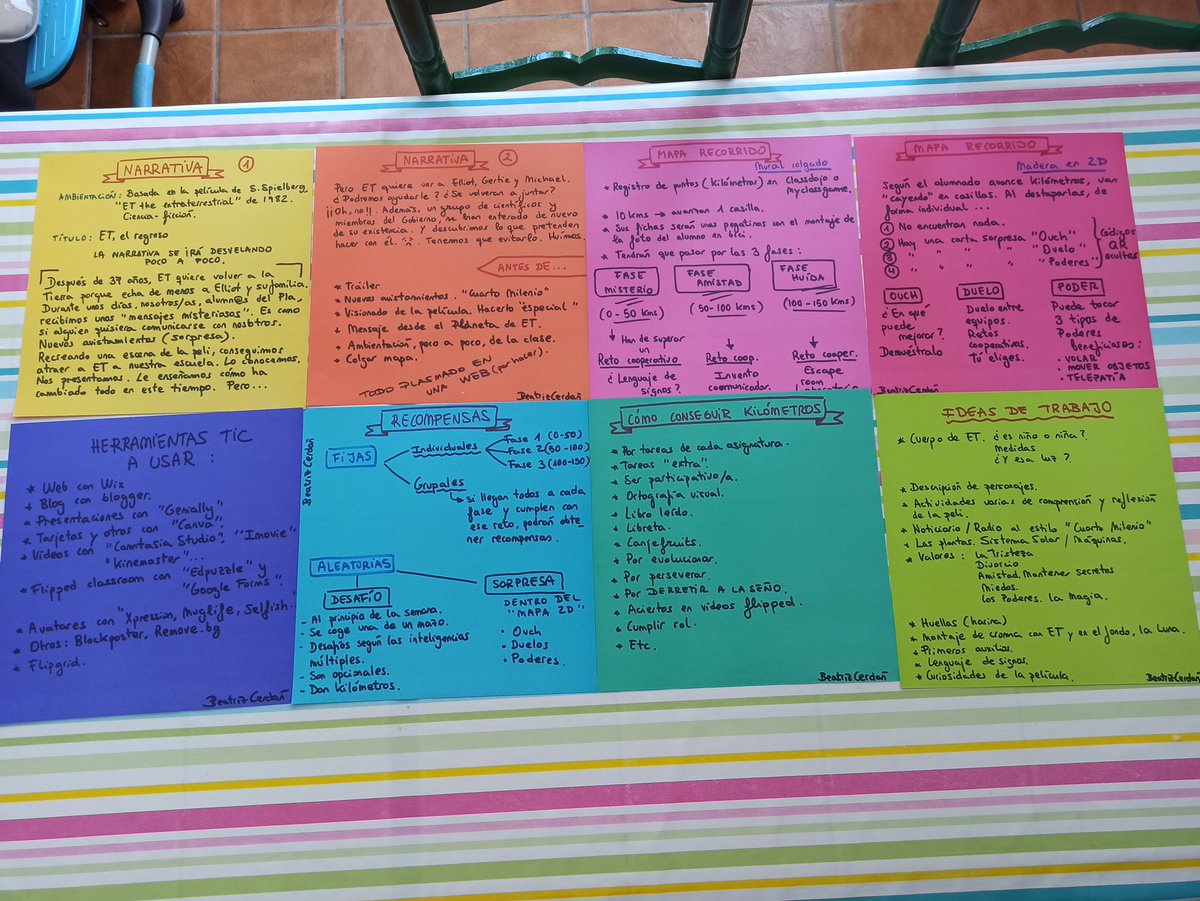 NARRATIVA 1
AMBIENTACIÓN: Basada en la película de S. Spielberg,
"ET the extraterrestrial" de 1982.
Ciencia-ficción.
TÍTULO: ET, el regreso
LA NARRATIVA SE IRÁ DESVELANDO
POCO A POCO.
Después de 37 años, ET quiere volver a la
Tierra porque echa de menos a Elliot y su familia.
Durante unos días, nosotros/as, alumn@s del Pla,
recibimos unos "mensajes misteriosos". Es como
si alguien quisiera comunicarse con nosotros.
Nuevos avistamientos (sorpresa).
Recreando una escena de la peli, conseguimos
atraer a ET a nuestra escuela. Lo conocemos.
Nos presentamos. Le enseñamos cómo ha
cambiado todo en este tiempo. Pero...
NARRATIVA 2
Pero ET quiere ver a Elliot, Gertie y Michael.
¿Podremos ayudarle? ¿Se volverán a juntar?
¡¡Oh, no!! Además, un grupo de científicos y
miembros del Gobierno, se han enterado de nuevo
de su existencia. Y descubrimos lo que pretenden
hacer con él. :( Tenemos que evitarlo. Huimos.
ANTES DE...
* Tráiler
* Nuevos avistamientos. "Cuarto Milenio"
* Visionado de la película. Hacerlo "especial"
* Mensaje desde el Planeta de ET.
* Ambientación, poco a poco, de la clase.
* Colgar mapa.
TODO PLASMADO EN
UNA WEB (por hacer).
Beatriz Cerdañ
MAPA RECORRIDO
Mural colgado
* Registro de puntos (kilómetros) en Classdojo o
myclassgame.
* 10 kms → avanzan 1 casilla.
* Sus fichas serán una pegatina con el montaje de
la foto del alumno en bici.
* Tendrán que pasar por las 3 fases:
FASE MISTERIO FASE AMISTAD FASE HUÍDA
(0-50 kms) (50-100 kms) (100-150 kms)
↓ Han de superar
un
Reto cooperativo Reto coop. Reto cooper.
¿Lenguaje de Invento Escape
signos? comunicador. room
MAPA RECORRIDO
Madera en 2D
Según el alumnado avance kilómetros, van
"cayendo" en casillas. Al destaparlas, de
forma individual ...
1 No encuentran nada.
2 Hay una carta sorpresa "Ouch"
3 " " " " "Duelo"
4 " " " " "Poderes"
Códigos
QR
ocultos
OUCH DUELO PODER
¿En qué Duelo entre Puede tocar
puede equipos. 3 tipos de
mejorar? Retos Poderes
Demuéstralo cooperativos. beneficiosos:
Tú eliges. · VOLAR
· MOVER OBJETOS
· TELEPATÍA
Beatriz Cerdañ
HERRAMIENTAS TIC
A USAR:
* Web con Wix
* Blog con blogger.
* Presentaciones con "Genially".
* Tarjetas y otros con "Canva".
* Vídeos con "Camtasia Studio", "Imovie"
"Kinemaster"...
* Flipped classroom con "Edpuzzle" y
"Google Forms".
* Avatares con "Xpression, Muglife, Selfish.
* Otros: Blockposter, Remove.bg
* Flipgrid.
Beatriz Cerdañ
RECOMPENSAS
Beatriz Cerdañ
FIJAS
Individuales
Fase 1 (0-50)
Fase 2 (50-100)
Fase 3 (100-150)
Grupales
↳ si llegan todos a cada
fase y cumplen con
ese reto, podrán obte
ner recompensas.
ALEATORIAS
DESAFÍO
- Al principio de la semana.
- Se coge una de un mazo.
- Desafíos según las inteligencias
múltiples.
- Son opcionales.
- Dan kilómetros.
SORPRESA
DENTRO DEL
"MAPA 2D"
· Ouch
· Duelos
· Poderes.
CÓMO CONSEGUIR KILÓMETROS
* Por tareas de cada asignatura.
* Tareas "extra".
* Ser participativo/a.
* Ortografía visual.
* Libro leído.
* Libreta.
* Canjefruits.
* Por evolucionar.
* Por perseverar.
* Por DERRETIR A LA SEÑO.
* Aciertos en vídeos flipped.
* Cumplir rol.
* Etc.
Beatriz Cerdañ
IDEAS DE TRABAJO
* Cuerpo de ET. ¿es niño o niña?
Medidas
¿Y esa luz?
* Descripción de personajes.
* Actividades varias de comprensión y reflexión
de la peli.
* Noticiario / Radio al estilo "Cuarto Milenio"
* Las plantas. Sistema Solar / Máquinas.
* Valores: la Tristeza
Divorcio
Amistad. Mantener secretos
Miedos.
Los Poderes. La magia.
* Huellas (harina)
* Montaje de croma con ET y en el fondo, la Luna.
* Primeros auxilios.
* Lenguaje de signos.
* Curiosidades de la película.
Beatriz Cerdañ